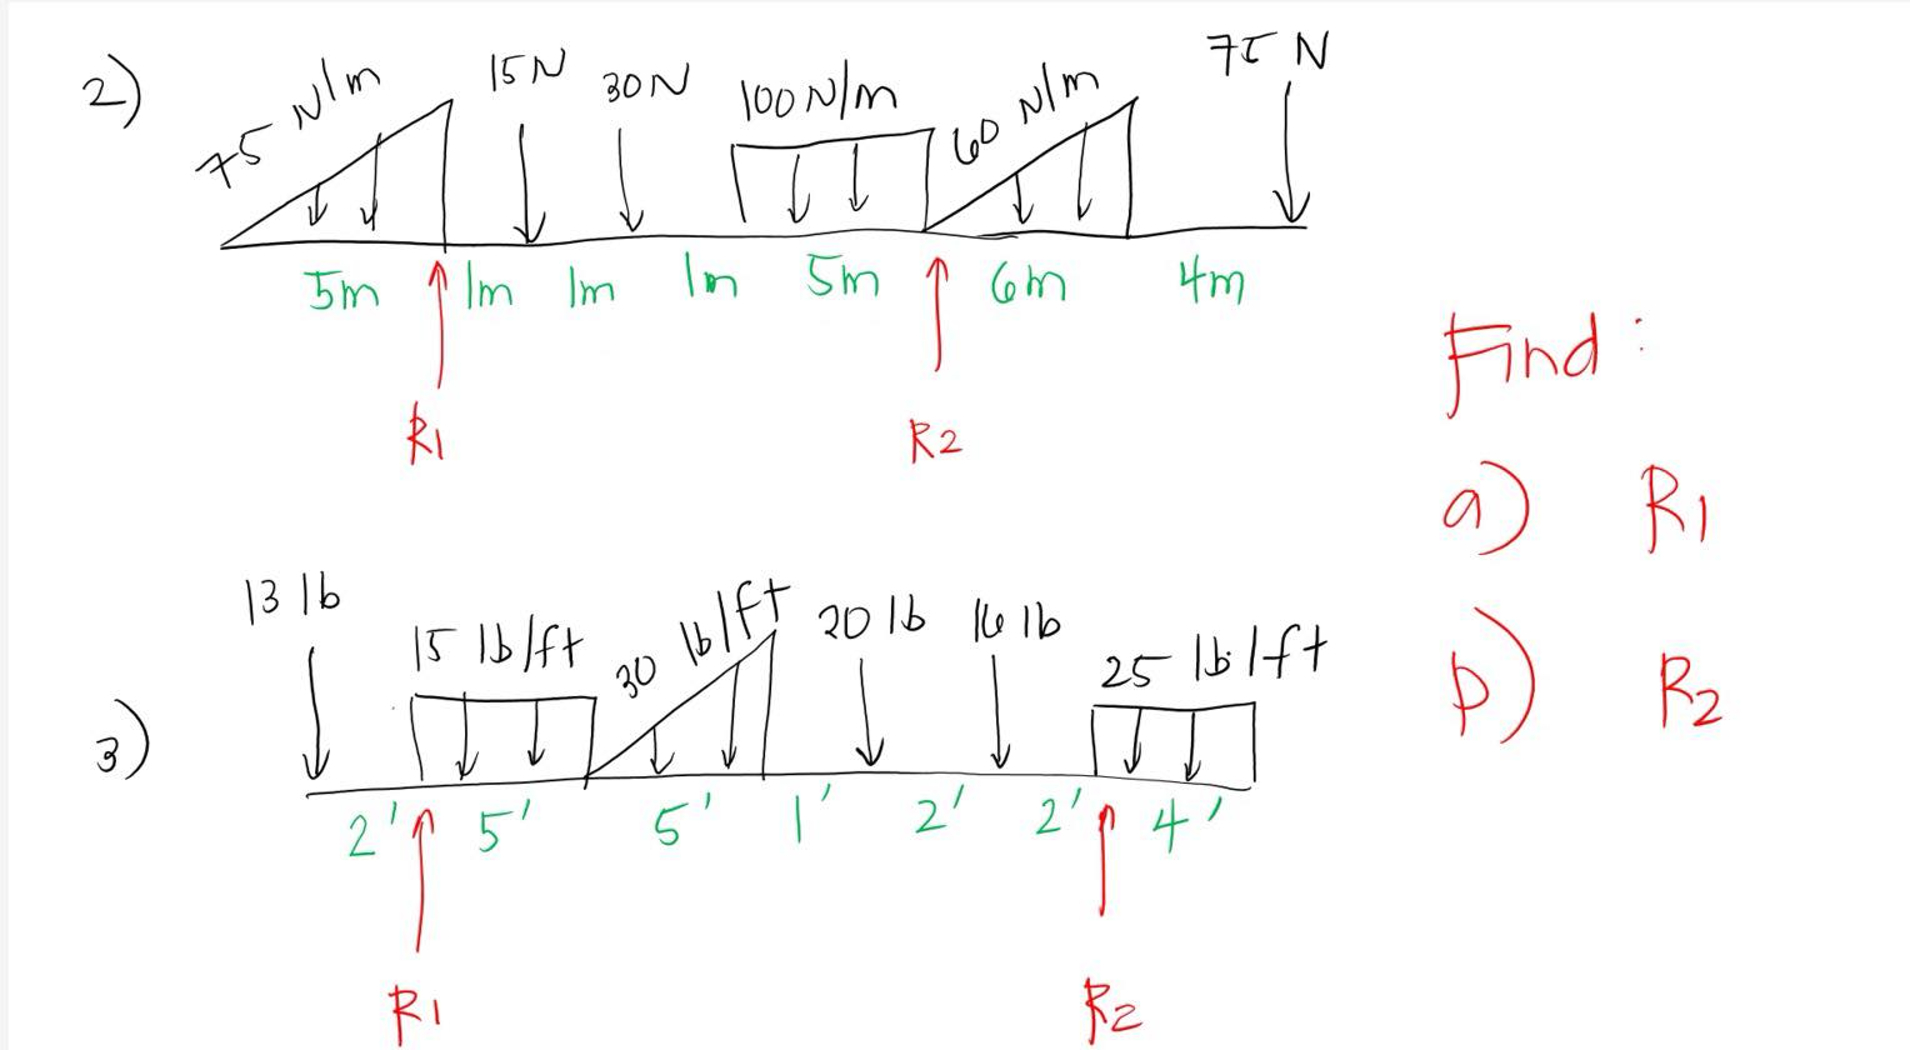 2)
75 N/m 15N 30N 100 N/m 60 N/m 75 N
5m 1m 1m 1m 5m 6m 4m
R1 R2
Find:
a) R1
b) R2
3)
13 lb 15 lb/ft 30 lb/ft 20 lb 16 lb 25 lb/ft
2' 5' 5' 1' 2' 2' 4'
R1 R2